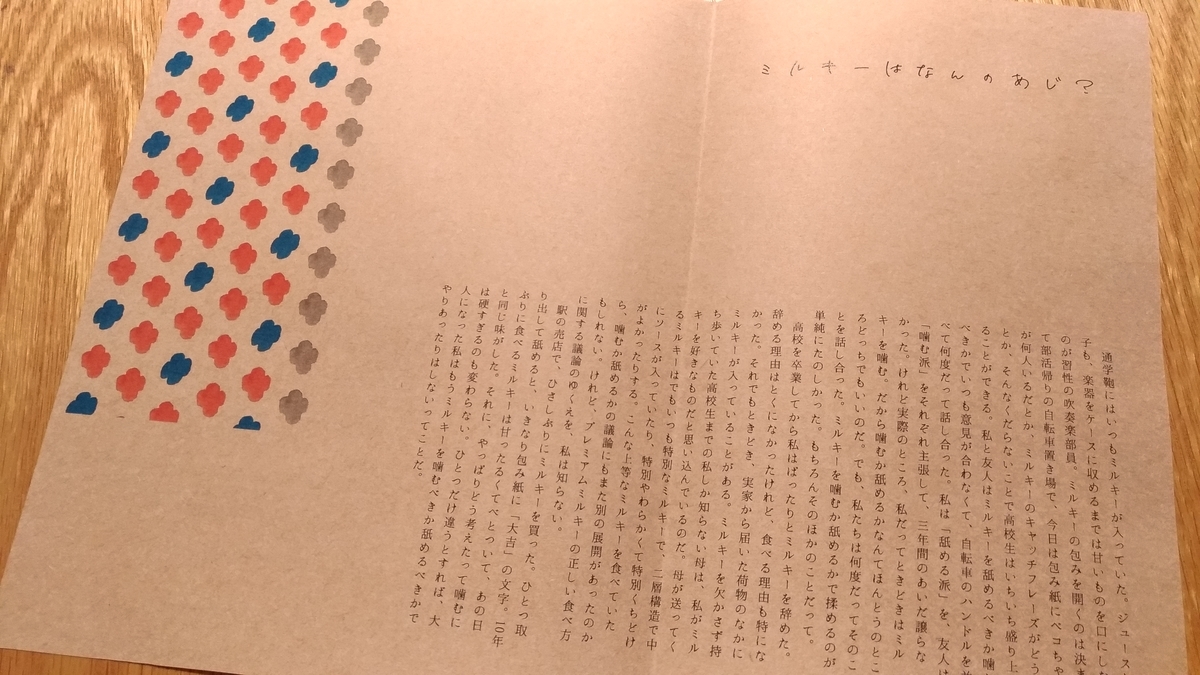 ミルキーはなんのあじ？
通学鞄にはいつもミルキーが入っていた。ジュース
子も、楽器をケースに収めるまでは甘いものを口にしな
のが習性の吹奏楽部員。ミルキーの包みを開くのは決ま
て部活帰りの自転車置き場で、今日は包み紙にペコちゃ
が何人いるだとか、ミルキーのキャッチフレーズがどう
とか、そんなくだらないことで高校生はいちいち盛り上
ることができる。私と友人はミルキーを舐めるべきか噛
べきかでいつも意見が合わなくて、自転車のハンドルを
べて何度だって話し合った。私は「舐める派」を、友人は
「噛む派」をそれぞれ主張して、三年間のあいだ譲らな
かった。けれど実際のところ、私だってときどきはミル
キーを噛む。だから噛むか舐めるかなんてほんとうのとこ
ろどっちでもいいのだ。でも、私たちは何度だってそのこ
とを話し合った。ミルキーを噛むか舐めるかで揉めるのが
単純にたのしかった。もちろんそのほかのことだって。
高校を卒業してから私はぱったりとミルキーを辞めた。
辞める理由はとくになかったけれど、食べる理由も特にな
かった。それでもときどき、実家から届いた荷物のなかに
ミルキーが入っていることがある。ミルキーを欠かさず持
ち歩いていた高校生までの私しか知らない母は、私がミル
キーを好きなものだと思い込んでいるのだ。母が送ってく
るミルキーはでもいつも特別なミルキーで、二層構造で中
にソースが入っていたり、特別やわらかくて特別くちどけ
がよかったりする。こんな上等なミルキーを食べていた
ら、噛むか舐めるかの議論にもまた別の展開があったのか
もしれない。けれど、プレミアムミルキーの正しい食べ方
に関する議論のゆくえを、私は知らない。
駅の売店で、ひさしぶりにミルキーを買った。ひとつ取
り出して舐めると、いきなり包み紙に「大吉」の文字。10年
ぶりに食べるミルキーは甘ったるくてべとついて、あの日
と同じ味がした。それに、やっぱりどう考えたって噛むに
は硬すぎるのも変わらない。ひとつだけ違うとすれば、大
人になった私はもうミルキーを噛むべきか舐めるべきかで
やりあったりはしないってことだ。